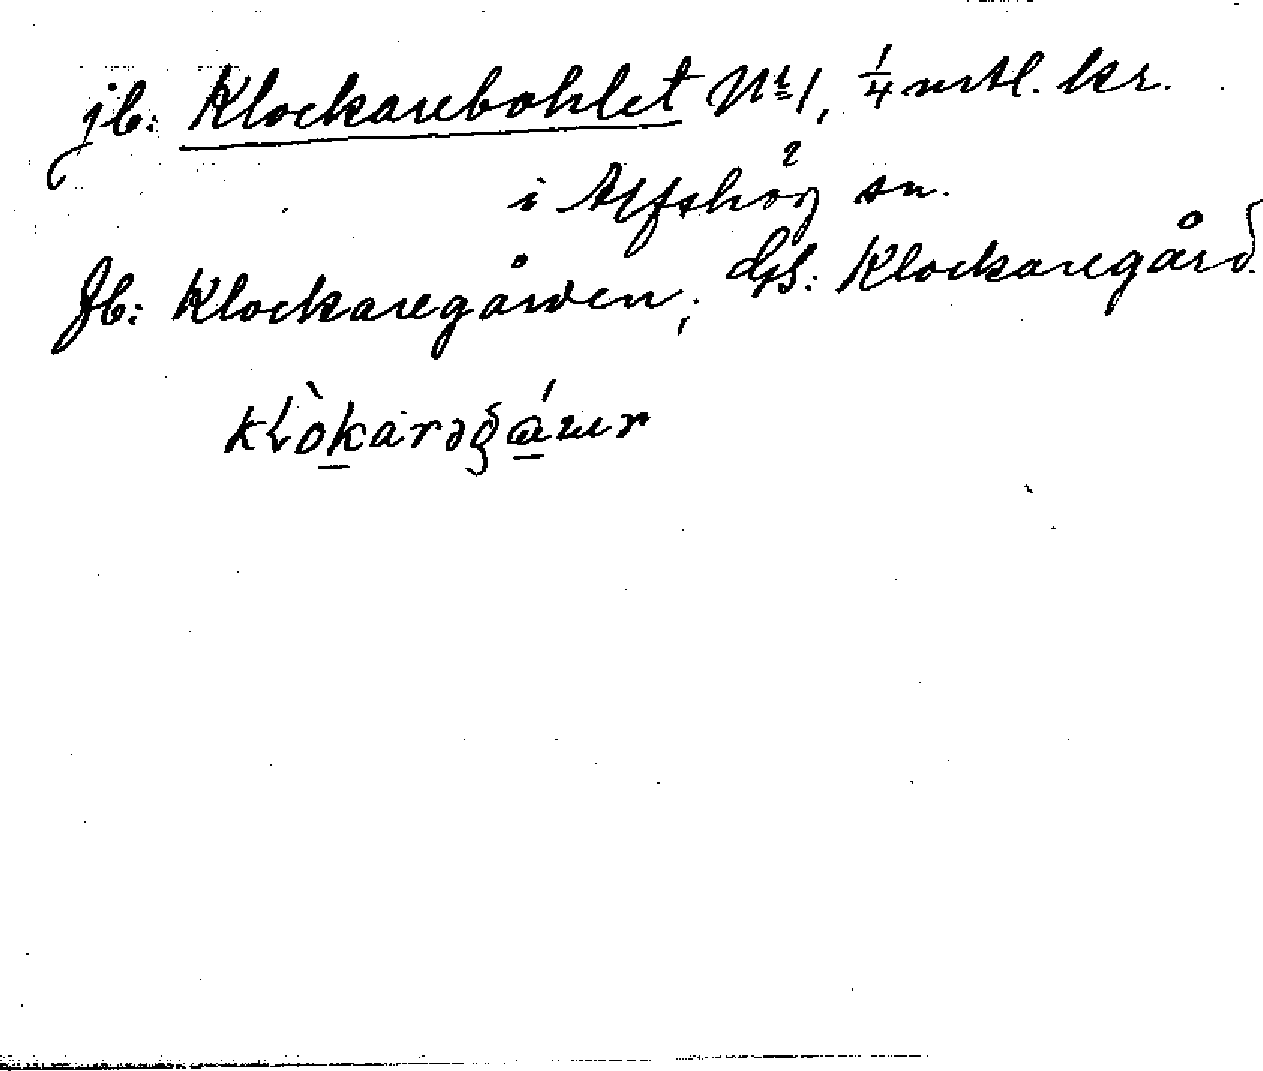 jb: Klockarebohlet Nr 1, 1/4 mtl. kr.
i Alfshög sn.
Jb: Klockaregården; Gs: Klockaregård.